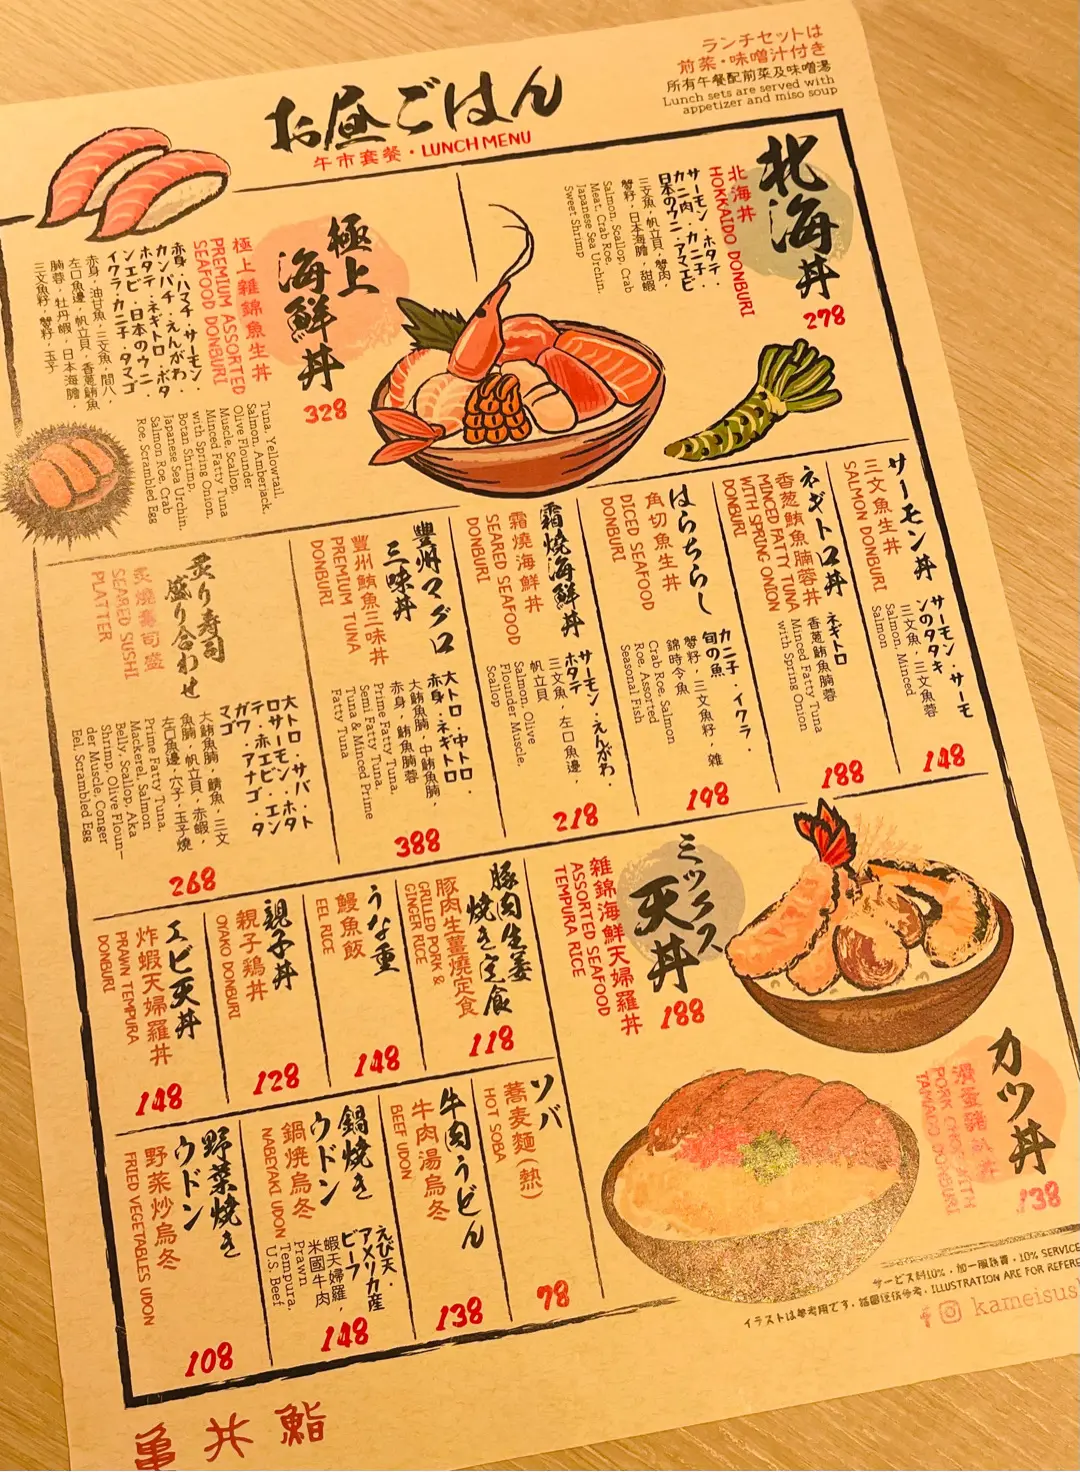 お昼ごはん
午市套餐・LUNCH MENU
ランチセットは
前菜・味噌汁付き
所有午餐配前菜及味噌湯
Lunch sets are served with
appetizer and miso soup
北海丼
北海丼
HOKKAIDO DONBURI
サーモン・ホタテ・
カニ肉・カニ子・
日本のウニ・アマエビ
三文魚, 帆立貝, 蟹肉,
蟹籽, 日本海膽, 甜蝦
Salmon, Scallop, Crab
Meat, Crab Roe,
Japanese Sea Urchin,
Sweet Shrimp
278
極上
海鮮丼
極上雜錦魚生丼
PREMIUM ASSORTED
SEAFOOD DONBURI
赤身・ハマチ・サーモン・
カンパチ・えんがわ・
ホタテ・ネギトロ・ボタ
ンエビ・日本のウニ・
イクラ・カニ子・タマゴ
赤身, 油甘魚, 三文魚, 間八,
左口魚邊, 帆立貝, 香蔥鮪魚
腩蓉, 牡丹蝦, 日本海膽,
三文魚籽, 蟹籽, 玉子
Tuna, Yellowtail,
Salmon, Amberjack,
Olive Flounder
Muscle, Scallop,
Minced Fatty Tuna
with Spring Onion,
Botan Shrimp,
Japanese Sea Urchin,
Salmon Roe, Crab
Roe, Scrambled Egg
328
サーモン丼
三文魚生丼
SALMON DONBURI
サーモン・サーモ
ンのタタキ
三文魚, 三文魚蓉
Salmon, Minced
Salmon
148
ネギトロ丼
香葱鮪魚腩蓉丼
MINCED FATTY TUNA
WITH SPRING ONION
DONBURI
ネギトロ
香蔥鮪魚腩蓉
Minced Fatty Tuna
with Spring Onion
188
はらちらし
角切魚生丼
DICED SEAFOOD
DONBURI
カニ子・イクラ・
旬の魚
蟹籽, 三文魚籽, 雜
錦時令魚
Crab Roe, Salmon
Roe, Assorted
Seasonal Fish
198
霜焼海鮮丼
霜燒海鮮丼
SEARED SEAFOOD
DONBURI
サーモン・えんがわ・
ホタテ
三文魚, 左口魚邊,
帆立貝
Salmon, Olive
Flounder Muscle,
Scallop
218
豊州マグロ
三味丼
豐州鮪魚三味丼
PREMIUM TUNA
DONBURI
大トロ・中トロ・
赤身・ネギトロ
大鮪魚腩, 中鮪魚腩,
赤身, 鮪魚腩蓉
Prime Fatty Tuna,
Semi Fatty Tuna,
Tuna & Minced Prime
Fatty Tuna
388
炙り寿司
盛り合わせ
炙燒壽司盛
SEARED SUSHI
PLATTER
大トロ・サバ・ト
ロサーモン・ホタ
テ・赤エビ・エン
ガワ・アナゴ・タ
マゴ
大鮪魚腩, 鯖魚, 三文
魚腩, 帆立貝, 赤蝦,
左口魚邊, 穴子, 玉子燒
Prime Fatty Tuna,
Mackerel, Salmon
Belly, Scallop, Aka
Shrimp, Olive Floun-
der Muscle, Conger
Eel, Scrambled Egg
268
ミックス
天丼
雜錦海鮮天婦羅丼
ASSORTED SEAFOOD
TEMPURA RICE
188
豚肉生姜
焼き定食
豚肉生薑燒定食
GRILLED PORK &
GINGER RICE
118
うな重
鰻魚飯
EEL RICE
148
親子丼
親子鶏丼
OYAKO DONBURI
128
エビ天丼
炸蝦天婦羅丼
PRAWN TEMPURA
DONBURI
148
カツ丼
滑蛋豬扒丼
PORK CHOP WITH
TAMAGO DONBURI
138
ソバ
蕎麦麵(熱)
HOT SOBA
78
牛肉うどん
牛肉湯烏冬
BEEF UDON
138
鍋焼き
ウドン
鍋燒烏冬
NABEYAKI UDON
えび天・
アメリカ産
ビーフ
蝦天婦羅,
米國牛肉
Prawn
Tempura,
U.S. Beef
148
野菜焼き
ウドン
野菜炒烏冬
FRIED VEGETABLES UDON
108
サービス料10%・加一服務費・10% SERVICE
イラストは参考用です・插圖僅供參考・ILLUSTRATION ARE FOR REFERE
kameisus
亀井鮨